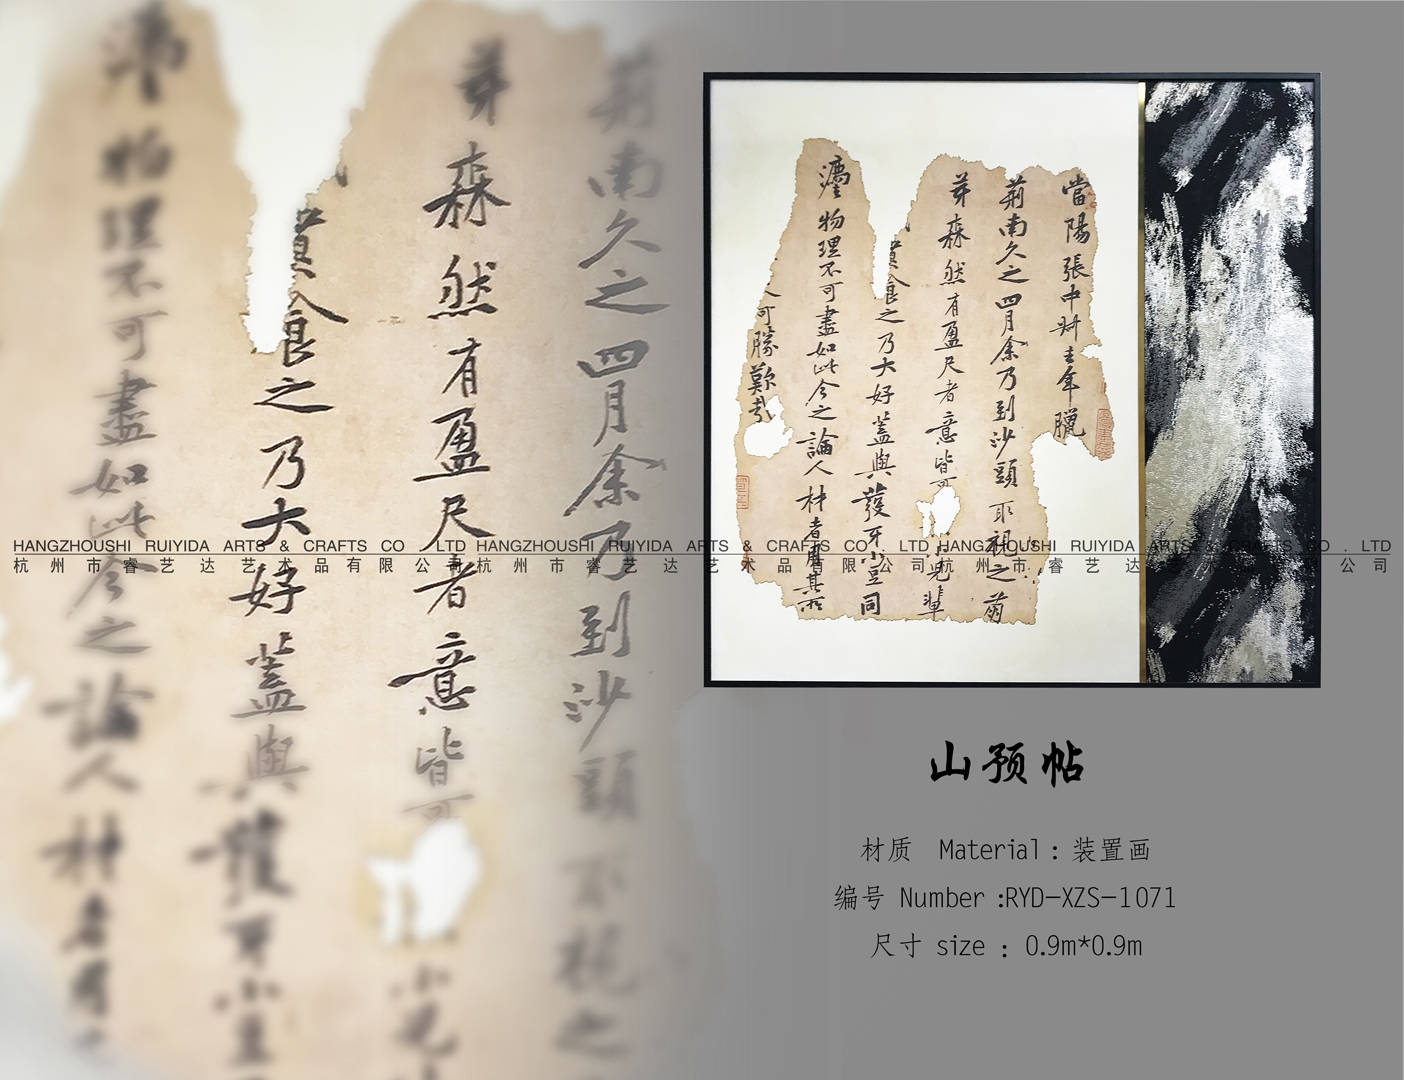 當陽張中叔去年臘
荊南久之四月余乃到沙頭取視之萌
芽森然有盈尺者意皆可
小兒輩
食之乃大好蓋與發牙小豆同
灋物理不可盡如此今之論人材者用其所
可勝歎哉
HANGZHOUSHI RUIYIDA ARTS & CRAFTS CO . LTD HANGZHOUSHI RUIYIDA ARTS & CRAFTS CO . LTD HANGZHOUSHI RUIYIDA ARTS & CRAFTS CO . LTD
杭州市睿艺达艺术品有限公司 杭州市睿艺达艺术品有限公司 杭州市睿艺达艺术品有限公司
山预帖
材质 Material : 装置画
编号 Number :RYD-XZS-1071
尺寸 size : 0.9m*0.9m